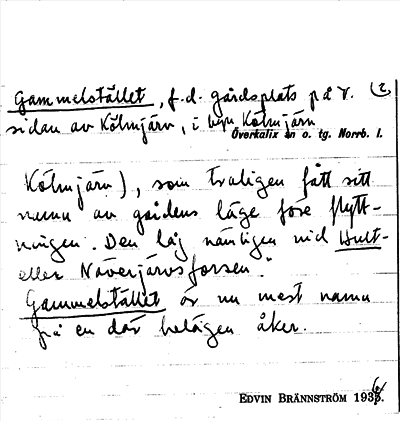 Gammelstället, f.d. gårdsplats på v. (2
sidan av Kölmjärv, i byn Kölmjärn
Överkalix sn o. tg. Norrb. l.
Kölmjärv), som troligen fått sitt
namn av gårdens läge före flytt-
ningen. Den låg nämligen vid Hult-
eller Näverjärvsforsen."
Gammelstället är nu mest namn
på en där belägen åker.
EDVIN BRÄNNSTRÖM 1936.